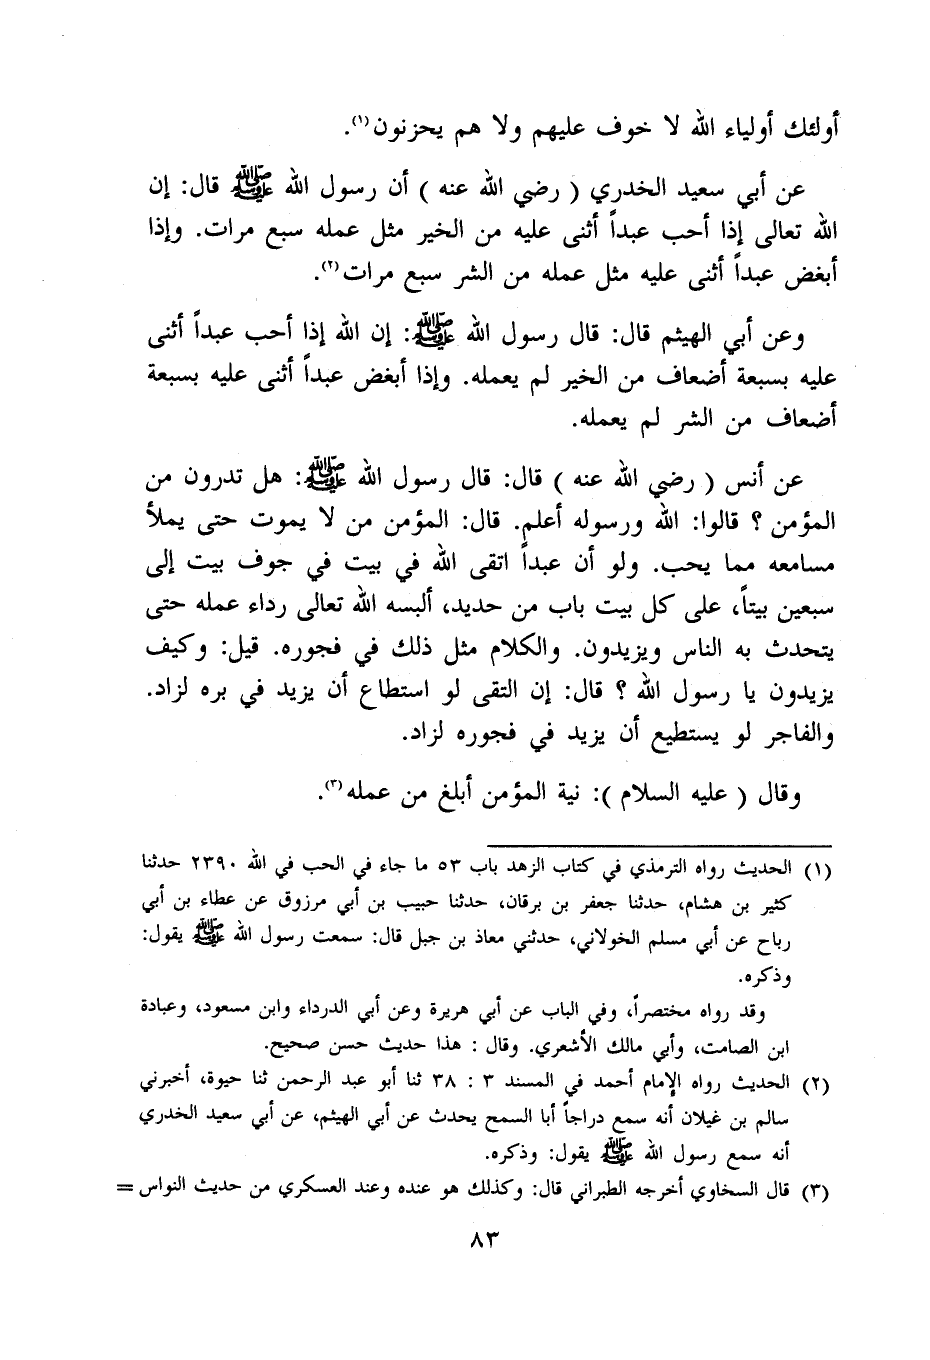 أولئك أولياء الله لا خوف عليهم ولا هم يحزنون(١).
عن أبي سعيد الخدري ( رضي الله عنه ) أن رسول الله ﷺ قال: إن
الله تعالى إذا أحب عبداً أثنى عليه من الخير مثل عمله سبع مرات. وإذا
أبغض عبداً أثنى عليه مثل عمله من الشر سبع مرات(٢).
وعن أبي الهيثم قال: قال رسول الله ﷺ: إن الله إذا أحب عبداً أثنى
عليه بسبعة أضعاف من الخير لم يعمله. وإذا أبغض عبداً أثنى عليه بسبعة
أضعاف من الشر لم يعمله.
عن أنس ( رضي الله عنه ) قال: قال رسول الله ﷺ: هل تدرون من
المؤمن ؟ قالوا: الله ورسوله أعلم. قال: المؤمن من لا يموت حتى يملأ
مسامعه مما يحب. ولو أن عبداً اتقى الله في بيت في جوف بيت إلى
سبعين بيتاً، على كل بيت باب من حديد، ألبسه الله تعالى رداء عمله حتى
يتحدث به الناس ويزيدون. والكلام مثل ذلك في فجوره. قيل: وكيف
يزيدون يا رسول الله ؟ قال: إن التقى لو استطاع أن يزيد في بره لزاد.
والفاجر لو يستطيع أن يزيد في فجوره لزاد.
وقال ( عليه السلام ): نية المؤمن أبلغ من عمله(٣).
(١) الحديث رواه الترمذي في كتاب الزهد باب ٥٣ ما جاء في الحب في الله ٢٣٩٠ حدثنا
كثير بن هشام، حدثنا جعفر بن برقان، حدثنا حبيب بن أبي مرزوق عن عطاء بن أبي
رباح عن أبي مسلم الخولاني، حدثني معاذ بن جبل قال: سمعت رسول الله ﷺ يقول:
وذكره.
وقد رواه مختصراً، وفي الباب عن أبي هريرة وعن أبي الدرداء وابن مسعود، وعبادة
ابن الصامت، وأبي مالك الأشعري. وقال : هذا حديث حسن صحيح.
(٢) الحديث رواه الإمام أحمد في المسند ٣ : ٣٨ ثنا أبو عبد الرحمن ثنا حيوة، أخبرني
سالم بن غيلان أنه سمع دراجاً أبا السمح يحدث عن أبي الهيثم، عن أبي سعيد الخدري
أنه سمع رسول الله ﷺ يقول: وذكره.
(٣) قال السخاوي أخرجه الطبراني قال: وكذلك هو عنده وعند العسكري من حديث النواس =
٨٣